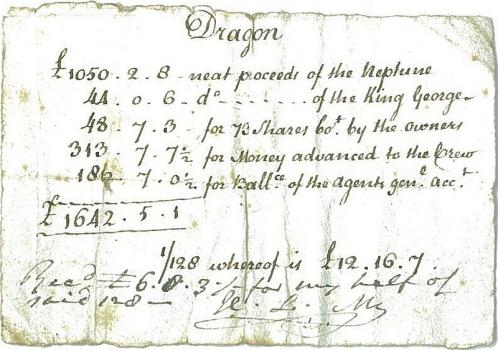 Dragon
£1050 . 2 . 8 - neat proceeds of the Neptune
44 . 0 . 6 - do - - - - - - of the King George -
48 . 7 . 3 - for Shares bot. by the owners
313 . 7 . 7½ for Money advanced to the Crew
186 . 7 . 0½ for Ballce. of the Agents genl. acct.
£ 1642 . 5 . 1
1/128 whereof is £12 . 16 . 7
Recd £ 6 . 8 . 3½ for my half of
said 128 —